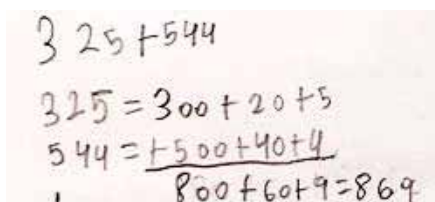 325+544
325=300+20+5
544=+500+40+4
800+60+9=869